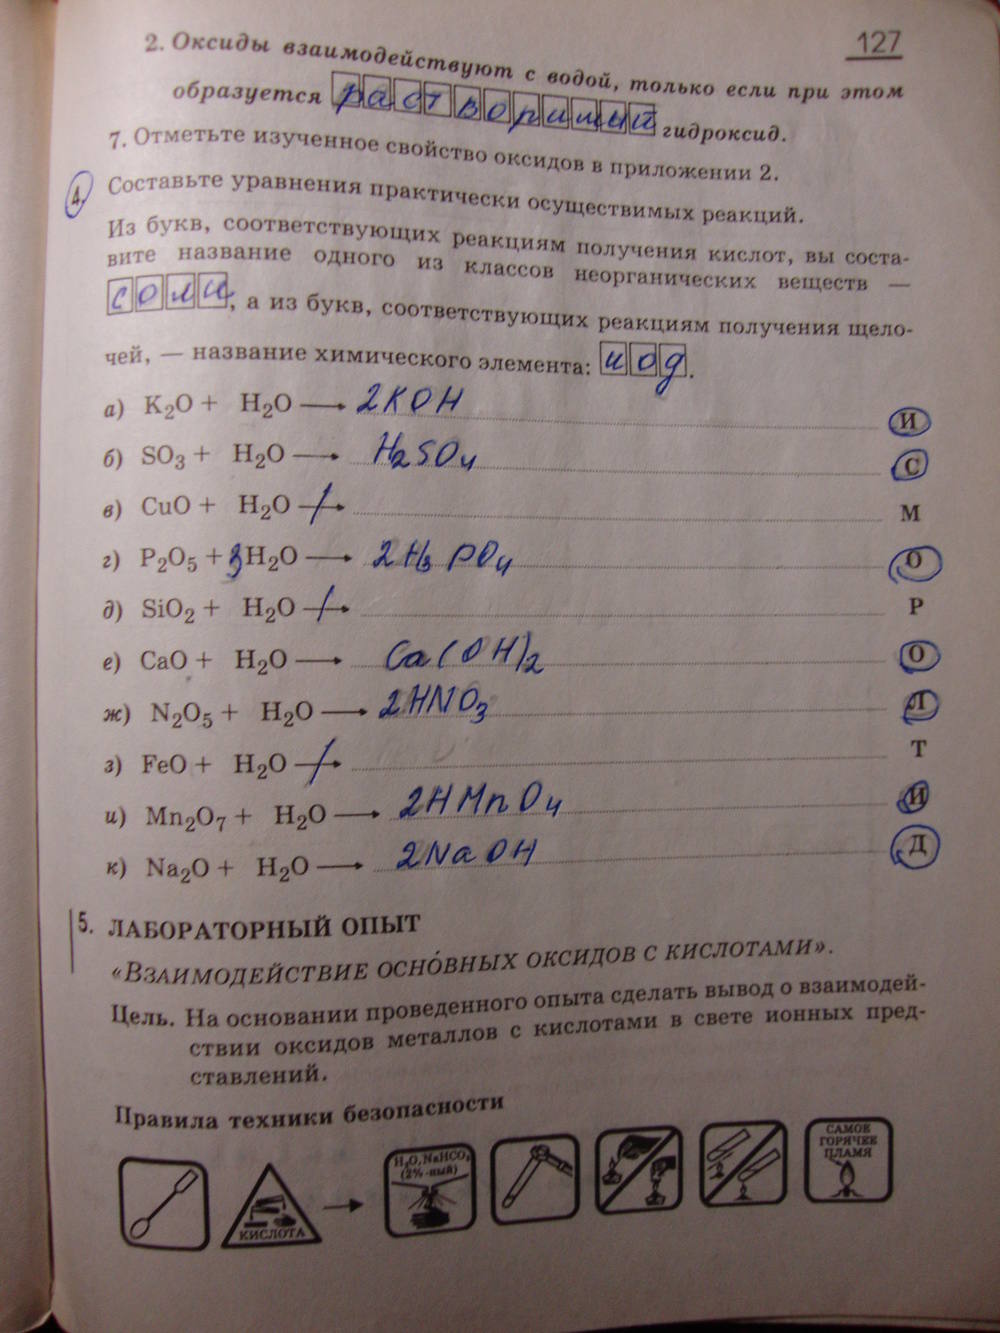 127
2. Оксиды взаимодействуют с водой, только если при этом
образуется растворимый гидроксид.
7. Отметьте изученное свойство оксидов в приложении 2.
4. Составьте уравнения практически осуществимых реакций.
Из букв, соответствующих реакциям получения кислот, вы соста-
вите название одного из классов неорганических веществ —
соли, а из букв, соответствующих реакциям получения щело-
чей, — название химического элемента: иод.
а) K₂O + H₂O ⟶ 2KOH И
б) SO₃ + H₂O ⟶ H₂SO₄ С
в) CuO + H₂O ⟶ М
г) P₂O₅ + 3H₂O ⟶ 2H₃PO₄ О
д) SiO₂ + H₂O ⟶ Р
е) CaO + H₂O ⟶ Ca(OH)₂ О
ж) N₂O₅ + H₂O ⟶ 2HNO₃ Л
з) FeO + H₂O ⟶ Т
и) Mn₂O₇ + H₂O ⟶ 2HMnO₄ И
к) Na₂O + H₂O ⟶ 2NaOH Д
5. ЛАБОРАТОРНЫЙ ОПЫТ
«ВЗАИМОДЕЙСТВИЕ ОСНО́ВНЫХ ОКСИДОВ С КИСЛОТАМИ».
Цель. На основании проведенного опыта сделать вывод о взаимодей-
ствии оксидов металлов с кислотами в свете ионных пред-
ставлений.
Правила техники безопасности
КИСЛОТА
H₂O, NaHCO₃
(2%-ный)
САМОЕ
ГОРЯЧЕЕ
ПЛАМЯ